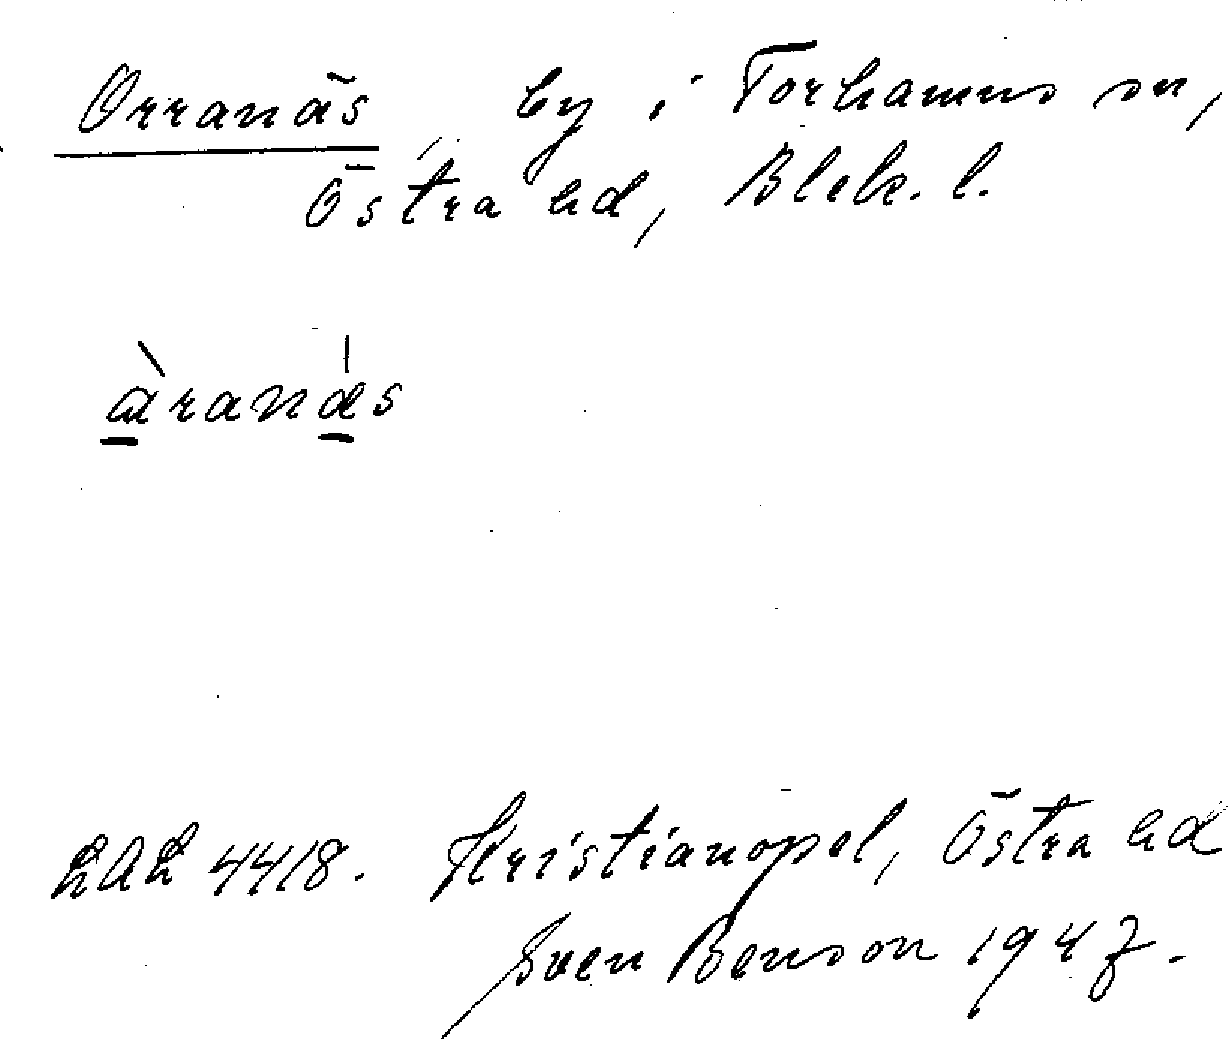 Orranäs, by i Torhamns sn,
Östra hd, Blek. l.
àranás
LAL 4418. Kristianopel, Östra hd
Sven Benson 1947.